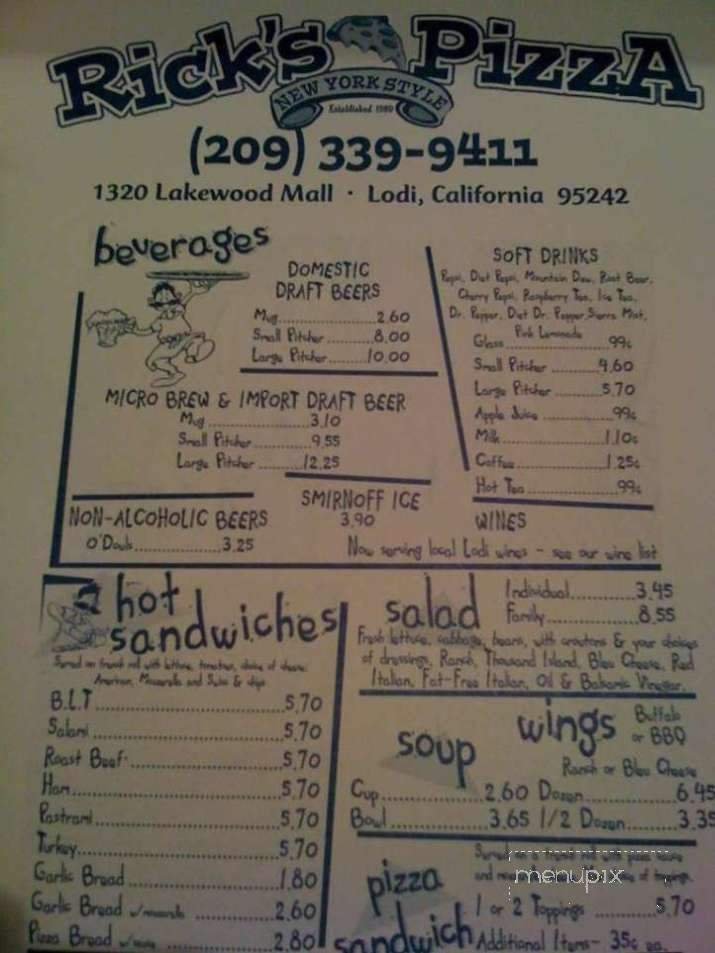 Rick's Pizza
NEW YORK STYLE
Established 1980
(209) 339-9411
1320 Lakewood Mall · Lodi, California 95242
beverages
DOMESTIC
DRAFT BEERS
Mug...............2.60
Small Pitcher........8.00
Large Pitcher.......10.00
MICRO BREW & IMPORT DRAFT BEER
Mug...............3.10
Small Pitcher..........9.55
Large Pitcher........12.25
SMIRNOFF ICE
3.90
NON-ALCOHOLIC BEERS
O'Douls...............3.25
SOFT DRINKS
Pepsi, Diet Pepsi, Mountain Dew, Root Beer,
Cherry Pepsi, Raspberry Tea, Ice Tea,
Dr. Pepper, Diet Dr. Pepper, Sierra Mist,
Pink Lemonade
Glass...................99¢
Small Pitcher..........4.60
Large Pitcher..........5.70
Apple Juice.............99¢
Milk...................1.10¢
Coffee.................1.25¢
Hot Tea.................99¢
WINES
Now serving local Lodi wines - see our wine list
hot
sandwiches
Served on french roll with lettuce, tomatoes, choice of cheese:
American, Mozzarella and Swiss & chips
B.L.T...................5.70
Salami..................5.70
Roast Beef..............5.70
Ham.....................5.70
Pastrami................5.70
Turkey..................5.70
Garlic Bread............1.80
Garlic Bread w/mozzarella ........2.60
Pizza Bread w/sauce ........2.80
salad
Individual..........3.45
Family..............8.55
Fresh lettuce, cabbage, beans, with croutons & your choices
of dressings, Ranch, Thousand Island, Bleu Cheese, Red
Italian, Fat-Free Italian, Oil & Balsamic Vinegar.
soup
Cup..............2.60
Bowl.............3.65
wings
Buffalo
or BBQ
Ranch or Bleu Cheese
Dozen............6.45
1/2 Dozen........3.35
pizza
sandwich
Served on a french roll with pizza sauce
and of toppings.
menupix
1 or 2 Toppings ..........5.70
Additional Items- 35¢ ea.